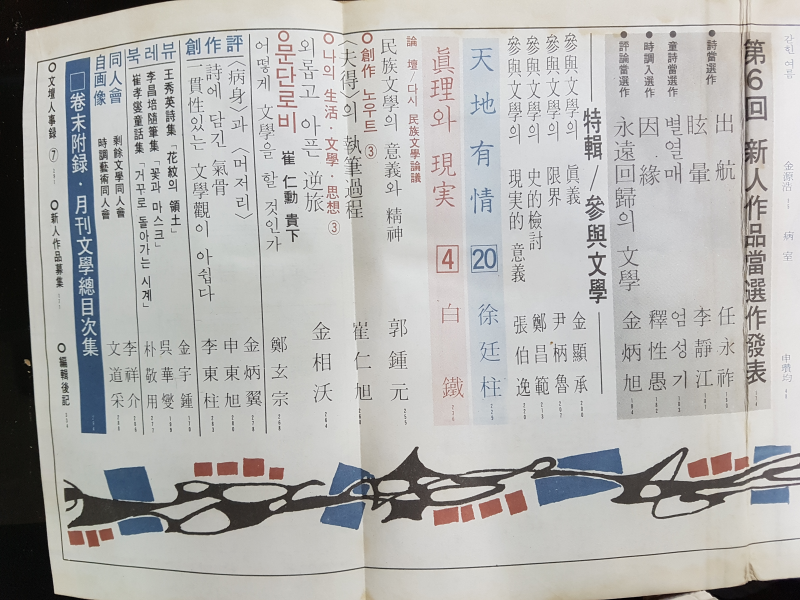 갇힌 여름
金源浩
病室
申瓚均
第6回 新人作品當選作發表
●詩當選作
出航
任永祚
眩暈
李靜江
●童詩當選作
별열매
엄성기
●時調入選作
因緣
釋性愚
●評論當選作
永遠回歸의 文學
金炳旭
特輯/參與文學
參與文學의 眞義
金顯承
參與文學의 限界
尹柄魯
參與文學의 史的檢討
鄭昌範
參與文學의 現実的 意義
張伯逸
天地有情 20 徐廷柱
眞理와 現実 4 白鐵
論壇/다시 民族文學論議
民族文學의 意義와 精神
郭鍾元
創作 노우트 ③
〈夫得〉의 執筆過程
崔仁旭
나의 生活·文學·思想 ③
외롭고 아픈 逆旅
金相沃
문단로비 崔仁勳 貴下
어떻게 文學을 할 것인가
鄭玄宗
創作評
〈病身〉과 〈머저리〉
金炳翼
詩에 담긴 氣骨
申東旭
一貫性있는 文學觀이 아쉽다
李東柱
북레뷰
王秀英詩集「花紋의 領土」
金宇鍾
李昌培隨筆集「꽃과 마스크」
吳華燮
崔孝燮童話集「거꾸로 돌아가는 시계」
朴敬用
同人會自画像
剩餘文學同人會
李祥介
時調藝術同人會
文道采
□卷末附録·月刊文學總目次集
文壇人事録 ⑦
新人作品募集
編輯後記